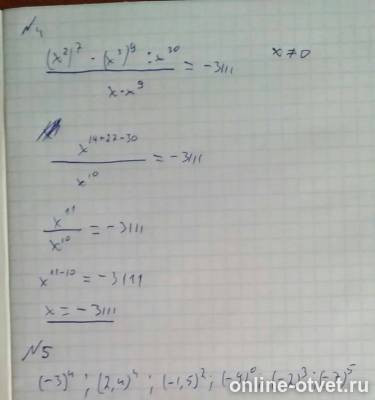 №4
(x²)⁷ · (x³)⁹ : x³⁰ / x · x⁹ = -3111   x ≠ 0
x¹⁴⁺²⁷⁻³⁰ / x¹⁰ = -3111
x¹¹ / x¹⁰ = -3111
x¹¹⁻¹⁰ = -3111
x = -3111
№5
(-3)⁴ ; (2,4)⁴ ; (-1,5)² ; (-4)⁰ ; (-2)³ ; (-7)⁵
online-otvet.ru